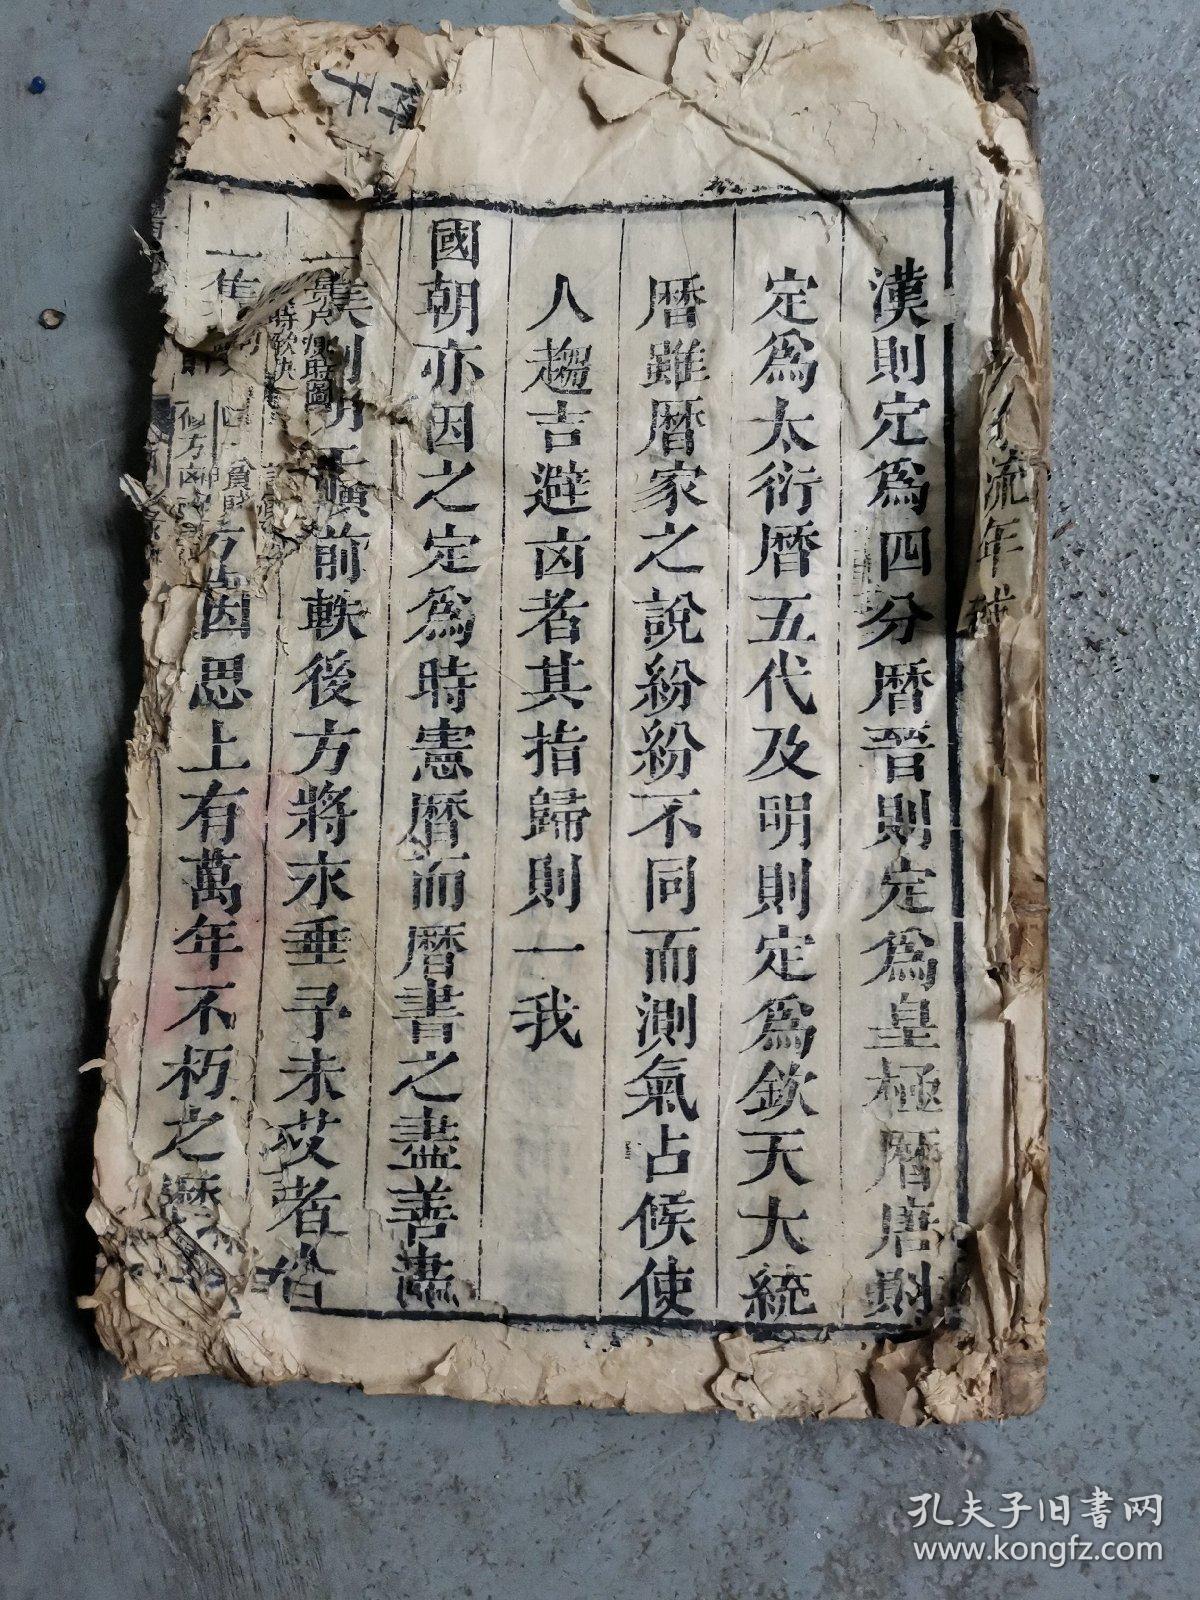 流年
漢則定為四分曆晉則定為皇極曆唐則
定為太衍曆五代及明則定為欽天大統
曆雖曆家之說紛紛不同而測氣占候使
人趨吉避凶者其指歸則一我
國朝亦因之定為時憲曆而曆書之盡善
前軼後方將永垂予未艾者
思上有萬年不朽之曆
孔夫子旧书网
www.kongfz.com